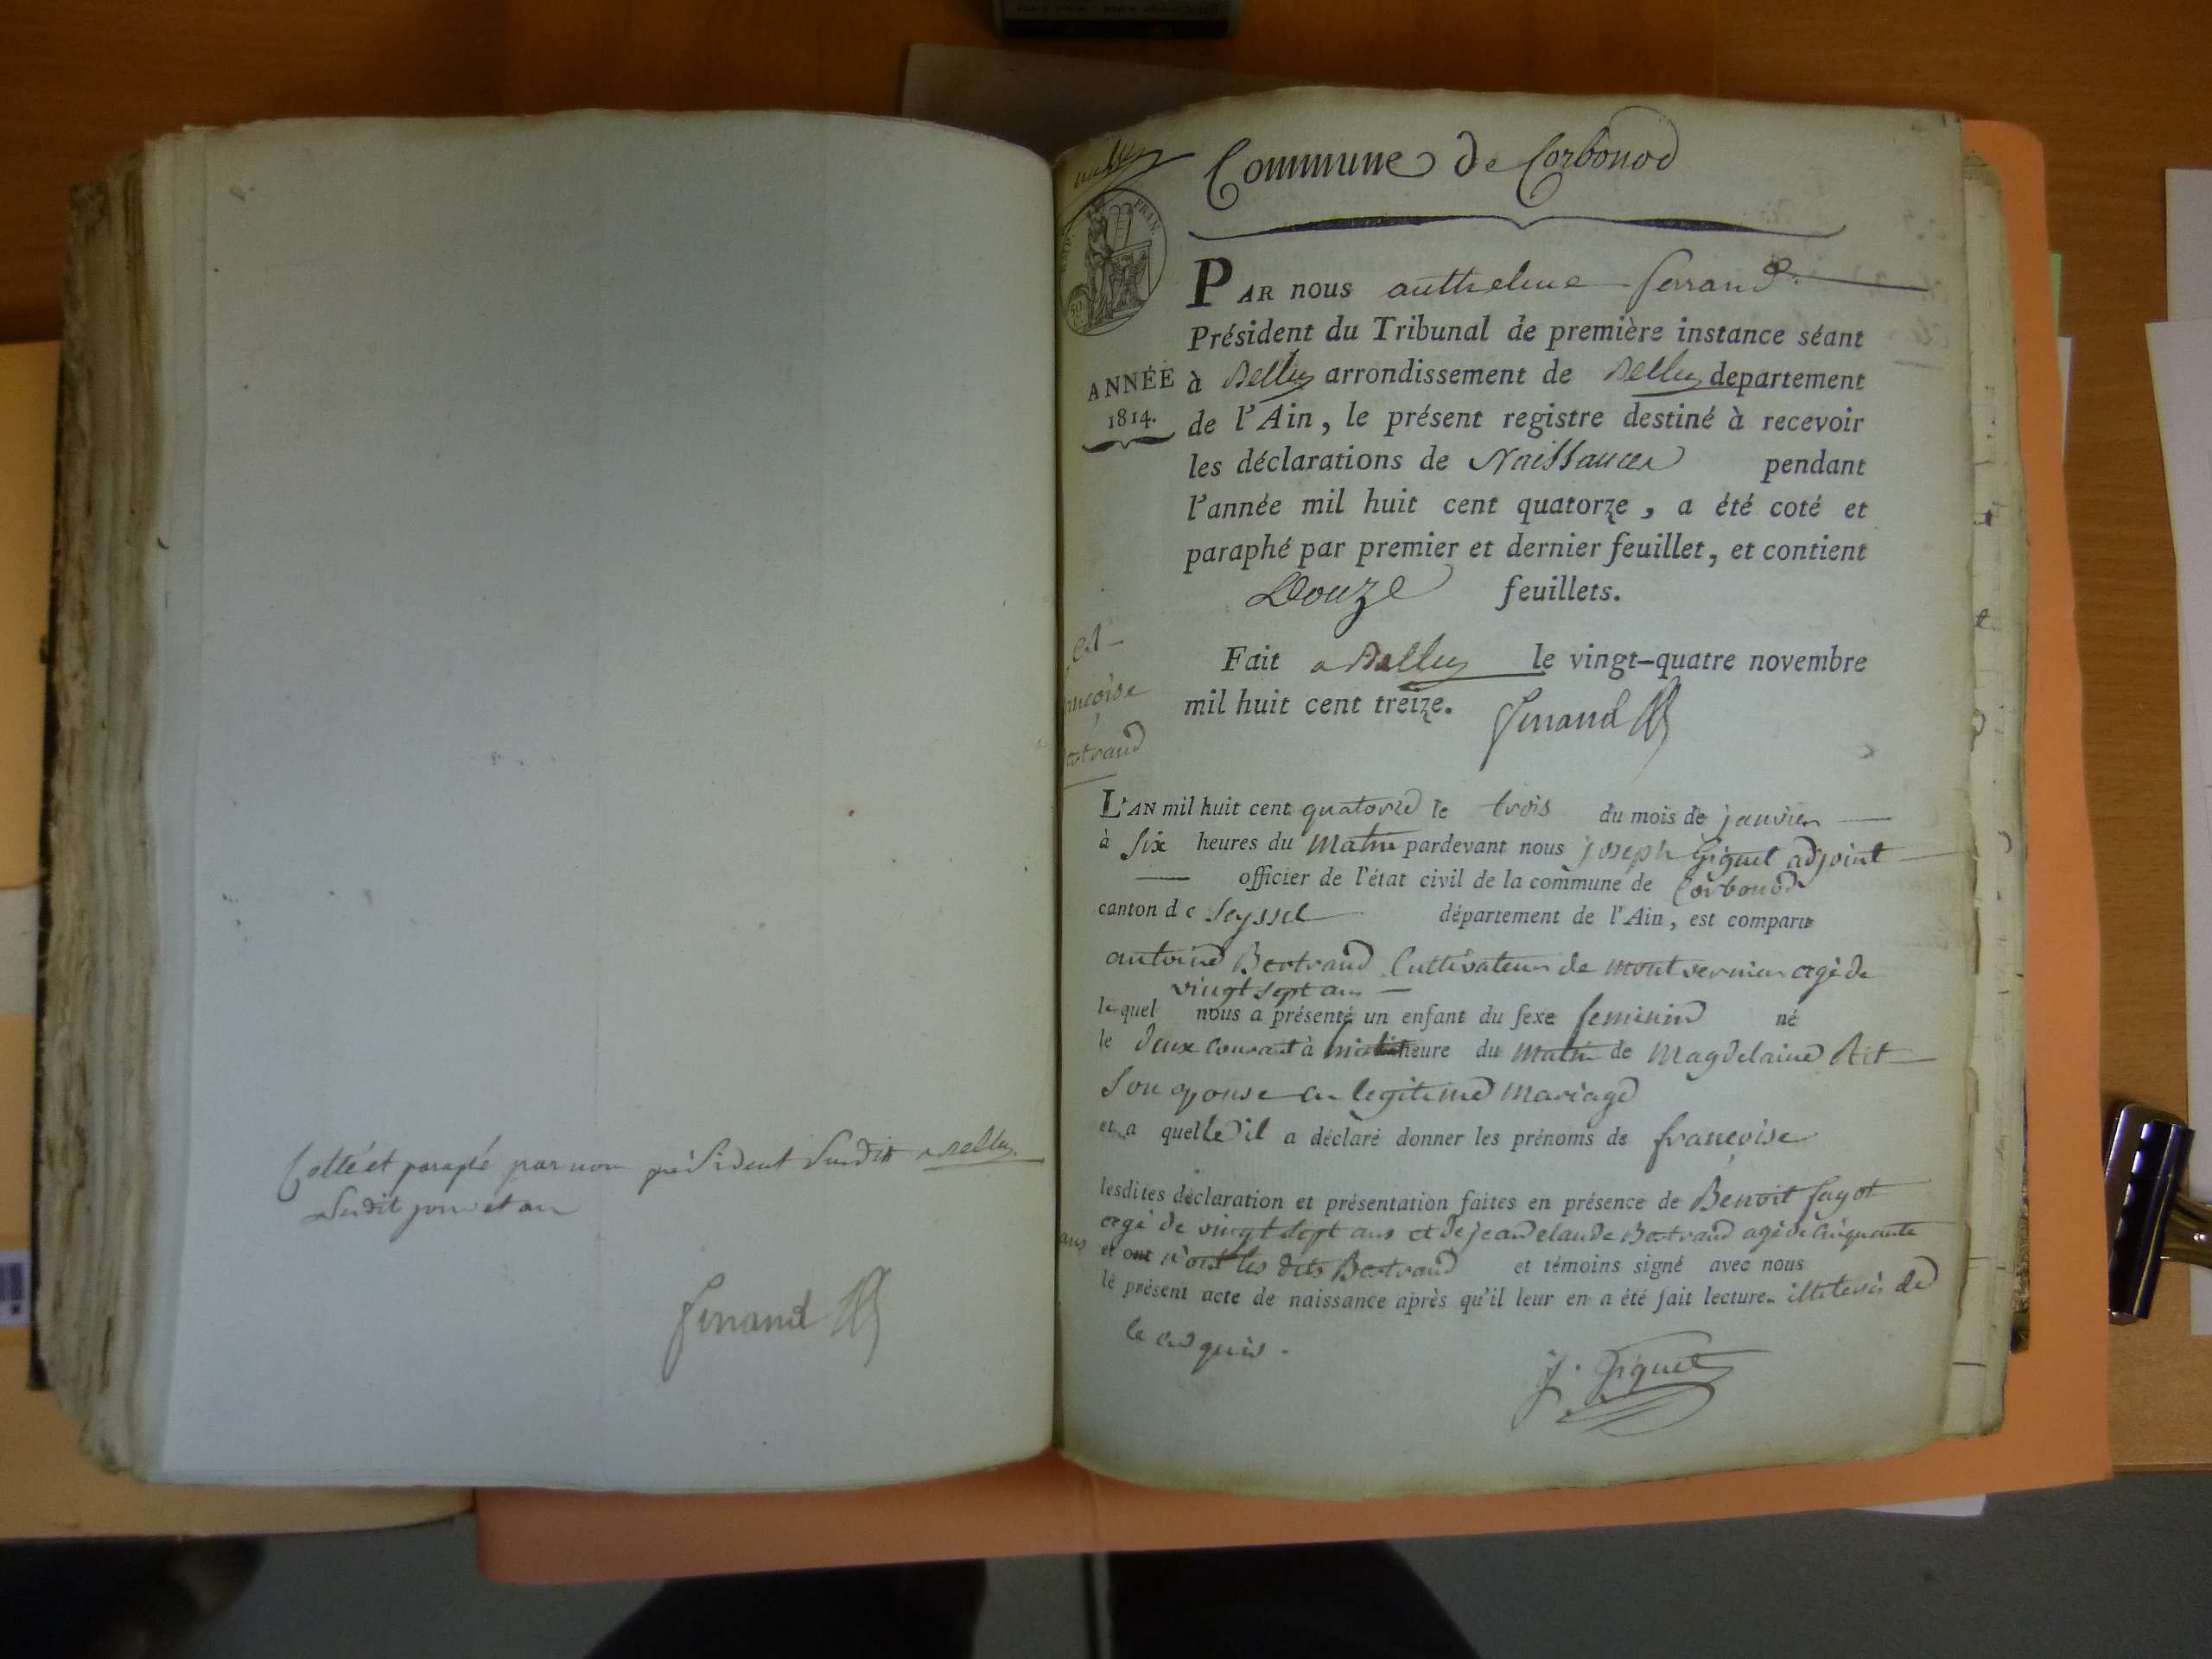 Cotté et paraphé par nous président susdit a Belley
susdit jour et an
Ferrand
Commune de Corbonod
FRAN.
50
ANNÉE
1814.
PAR nous anthelme ferrand
Président du Tribunal de première instance séant
à Belley arrondissement de Belley departement
de l'Ain, le présent registre destiné à recevoir
les déclarations de Naissances pendant
l'année mil huit cent quatorze, a été coté et
paraphé par premier et dernier feuillet, et contient
Douze feuillets.
Fait a Belley le vingt-quatre novembre
mil huit cent treize. Ferrand
ançoise
ertrand
L'AN mil huit cent quatorze le trois du mois de janvier
à Six heures du Matin pardevant nous joseph Giguet adjoint
officier de l'état civil de la commune de Corbonod
canton de Seyssel département de l'Ain, est comparu
antoine Bertrand Cultivateur de montvernier agé de
vingt sept ans
lequel nous a présenté un enfant du sexe feminin né
le deux courant à heure du matin de Magdelaine
son eponse en legitime mariage
et a quelle il a déclaré donner les prénoms de francoise
lesdites déclaration et présentation faites en présence de Benoit fagot
agé de vingt sept ans et de jean claude Bertrand agé de cinquante
ans et ont n'ont les dits Bertrand et témoins signé avec nous
le présent acte de naissance après qu'il leur en a été fait lecture. illiterés de
le enquis.
J. Giguet